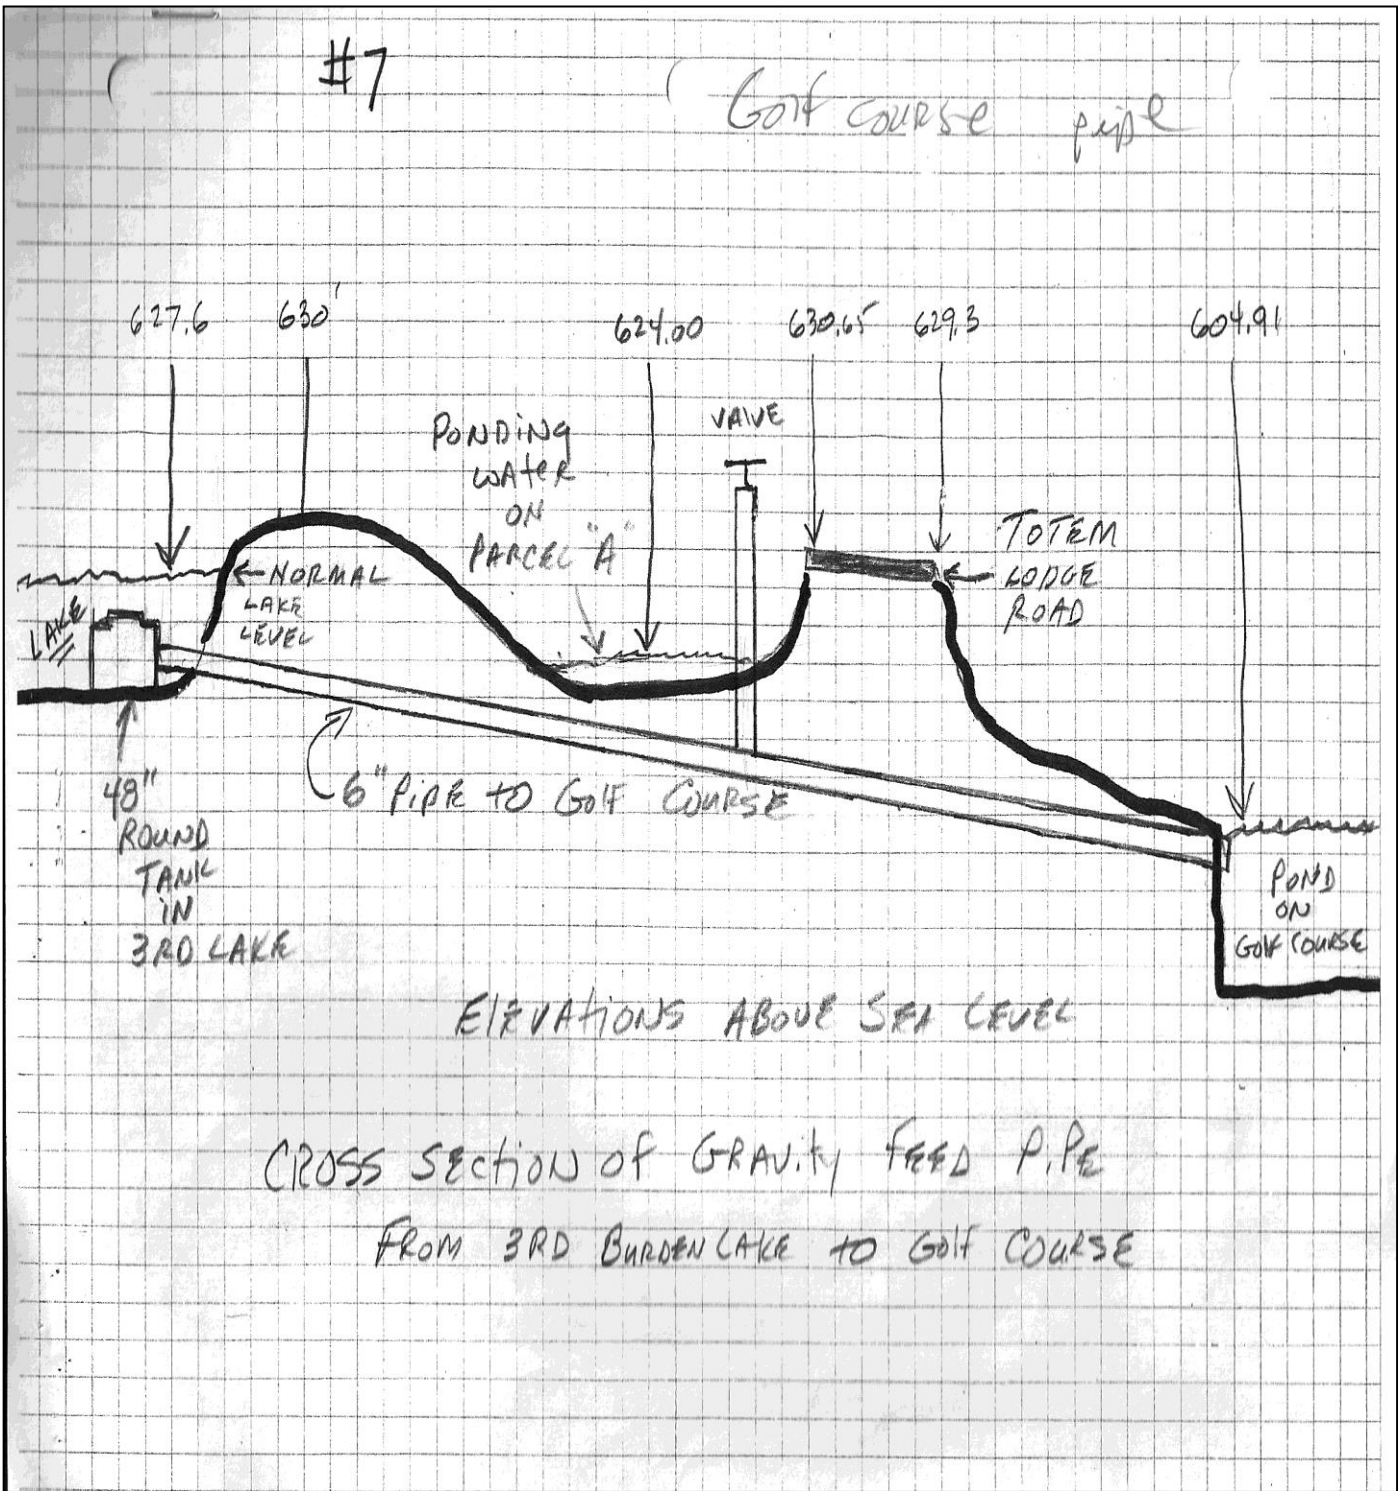 #7
Golf course pipe
627.6
630'
624.00
630.65
629.3
604.91
PONDING
WATER
ON
PARCEL "A"
VALVE
TOTEM
LODGE
ROAD
NORMAL
LAKE
LEVEL
LAKE
48"
ROUND
TANK
IN
3RD LAKE
6" PIPE TO GOLF COURSE
POND
ON
GOLF COURSE
ELEVATIONS ABOVE SEA LEVEL
CROSS SECTION OF GRAVITY FEED PIPE
FROM 3RD BURDEN LAKE TO GOLF COURSE